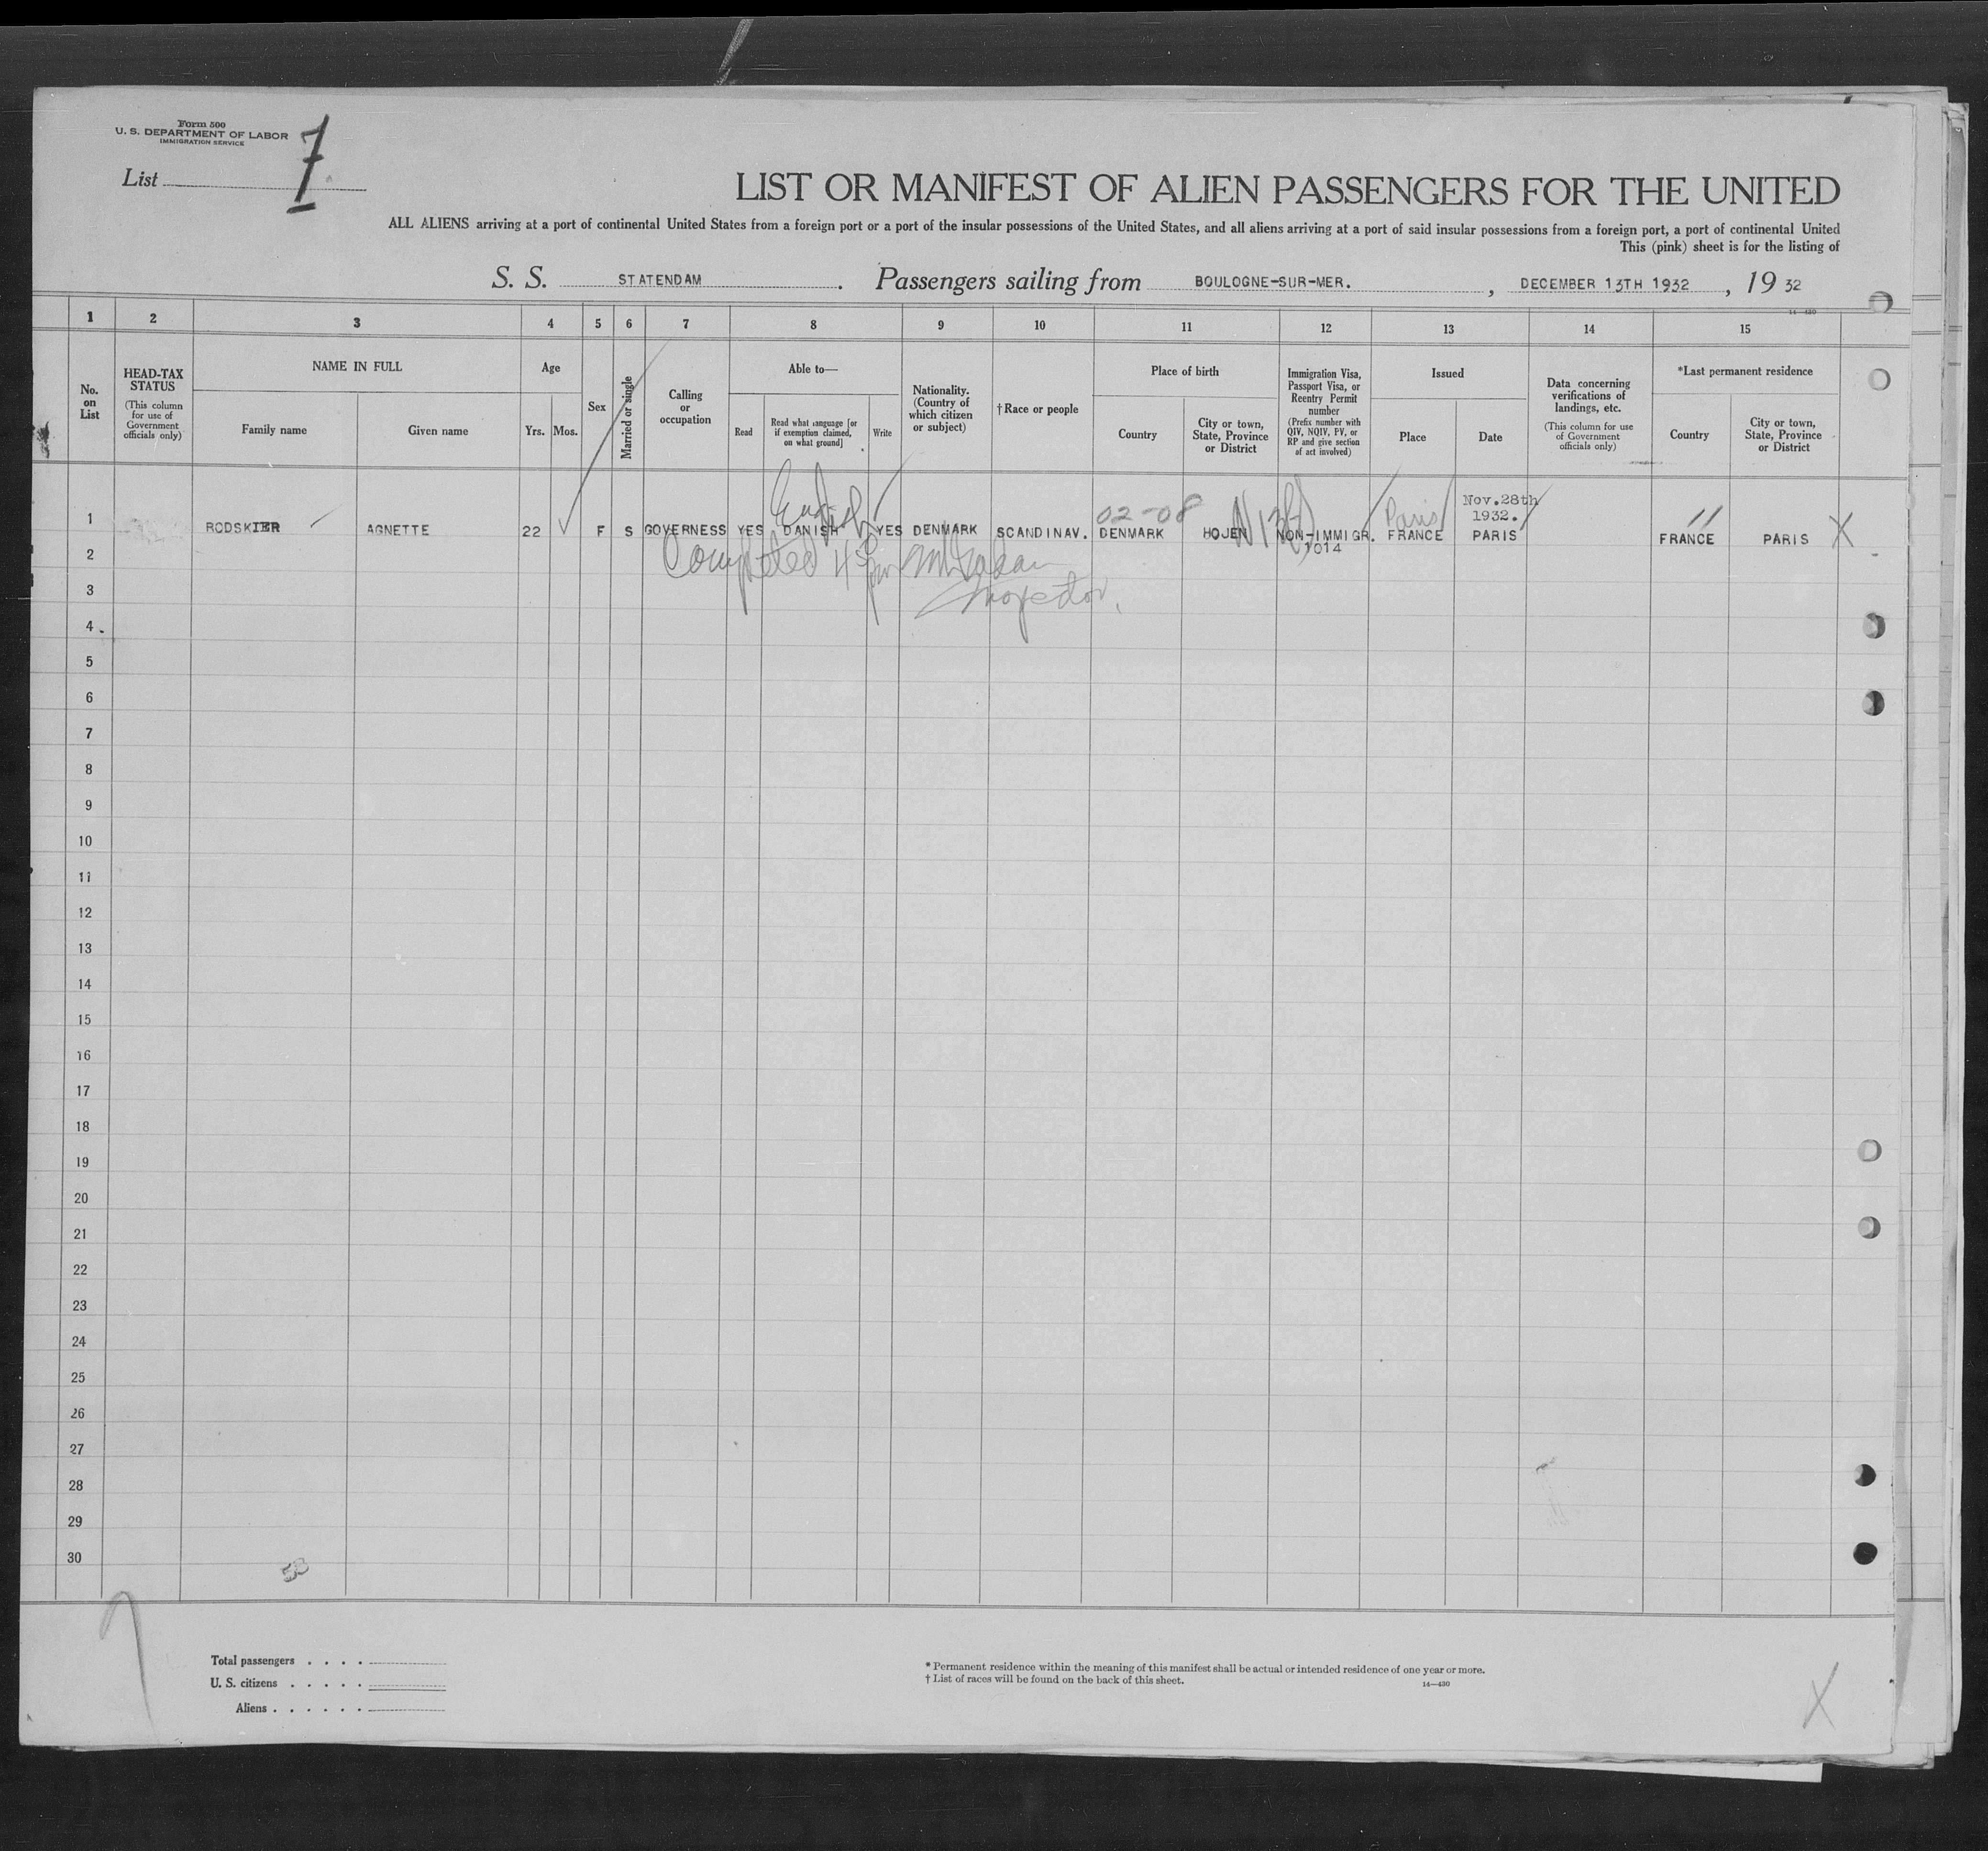 Form 500
U. S. DEPARTMENT OF LABOR
IMMIGRATION SERVICE
List 7
LIST OR MANIFEST OF ALIEN PASSENGERS FOR THE UNITED
ALL ALIENS arriving at a port of continental United States from a foreign port or a port of the insular possessions of the United States, and all aliens arriving at a port of said insular possessions from a foreign port, a port of continental United
This (pink) sheet is for the listing of
S. S. STATENDAM . Passengers sailing from BOULOGNE-SUR-MER. , DECEMBER 13TH 1932 , 19 32
14—430
1 2 3 4 5 6 7 8 9 10 11 12 13 14 15
No. on List
HEAD-TAX STATUS
(This column for use of Government officials only)
NAME IN FULL
Family name Given name
Age
Yrs. Mos.
Sex
Married or single
Calling or occupation
Able to—
Read
Read what language [or if exemption claimed, on what ground]
Write
Nationality. (Country of which citizen or subject)
†Race or people
Place of birth
Country
City or town, State, Province or District
Immigration Visa, Passport Visa, or Reentry Permit number
(Prefix number with QIV, NQIV, PV, or RP and give section of act involved)
Issued
Place Date
Data concerning verifications of landings, etc.
(This column for use of Government officials only)
*Last permanent residence
Country
City or town, State, Province or District
English
02-08
Paris
Nov.28th
1932.
11
1 RODSKIER AGNETTE 22 F S GOVERNESS YES DANISH YES DENMARK SCANDINAV. DENMARK HOJEN NON-IMMIGR. FRANCE PARIS FRANCE PARIS X
1014
2
Completed
Inspector.
3
4
5
6
7
8
9
10
11
12
13
14
15
16
17
18
19
20
21
22
23
24
25
26
27
28
29
30
Total passengers . . . .
U. S. citizens . . . . .
Aliens . . . . . .
* Permanent residence within the meaning of this manifest shall be actual or intended residence of one year or more.
† List of races will be found on the back of this sheet.
14—430
X